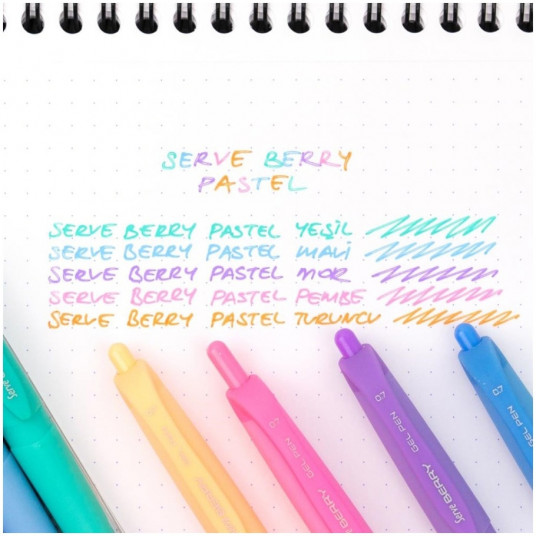 SERVE BERRY
PASTEL
SERVE BERRY PASTEL YEŞİL
SERVE BERRY PASTEL MAVİ
SERVE BERRY PASTEL MOR
SERVE BERRY PASTEL PEMBE
SERVE BERRY PASTEL TURUNCU
Serve
GEL PEN
Serve BERRY
GEL PEN
Serve BERRY
GEL PEN